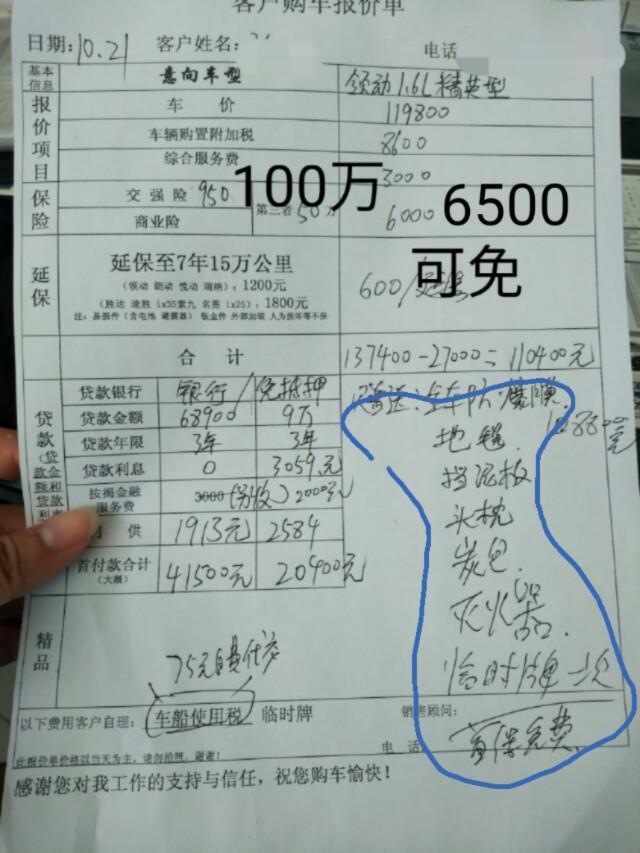 客户购车报价单
日期: 10.21 客户姓名: 电话
基本信息 意向车型 领动1.6L精英型
报价项目 车 价 119800
车辆购置附加税 8600
综合服务费 3000
100万
保险 交强险 950
商业险 第三者50万 6000
6500
可免
延保 延保至7年15万公里
(领动 朗动 悦动 瑞纳): 1200元
(胜达 途胜 ix35索九 名图 ix25): 1800元
注: 易损件(含电池 避震器) 钣金件 外部加装 人为损坏等不保
600/
合 计 137400-27000=110400元
贷款(贷款金额和贷款利率 贷款银行 银行/免抵押
贷款金额 68900 9万
贷款年限 3年 3年
贷款利息 0 3059元
按揭金融服务费 3000(另收) 2000元
供 1913元 2584
首付款合计(大概) 41500元 20400元
送: 全车防爆膜
地毯
挡泥板
头枕
炭包
灭火器
临时牌一次
首保免费
精品
以下费用客户自理: 车船使用税 临时牌 销售顾问:
电 话
此报价单价格以当天为主, 请勿拍照, 谢谢!
感谢您对我工作的支持与信任, 祝您购车愉快!